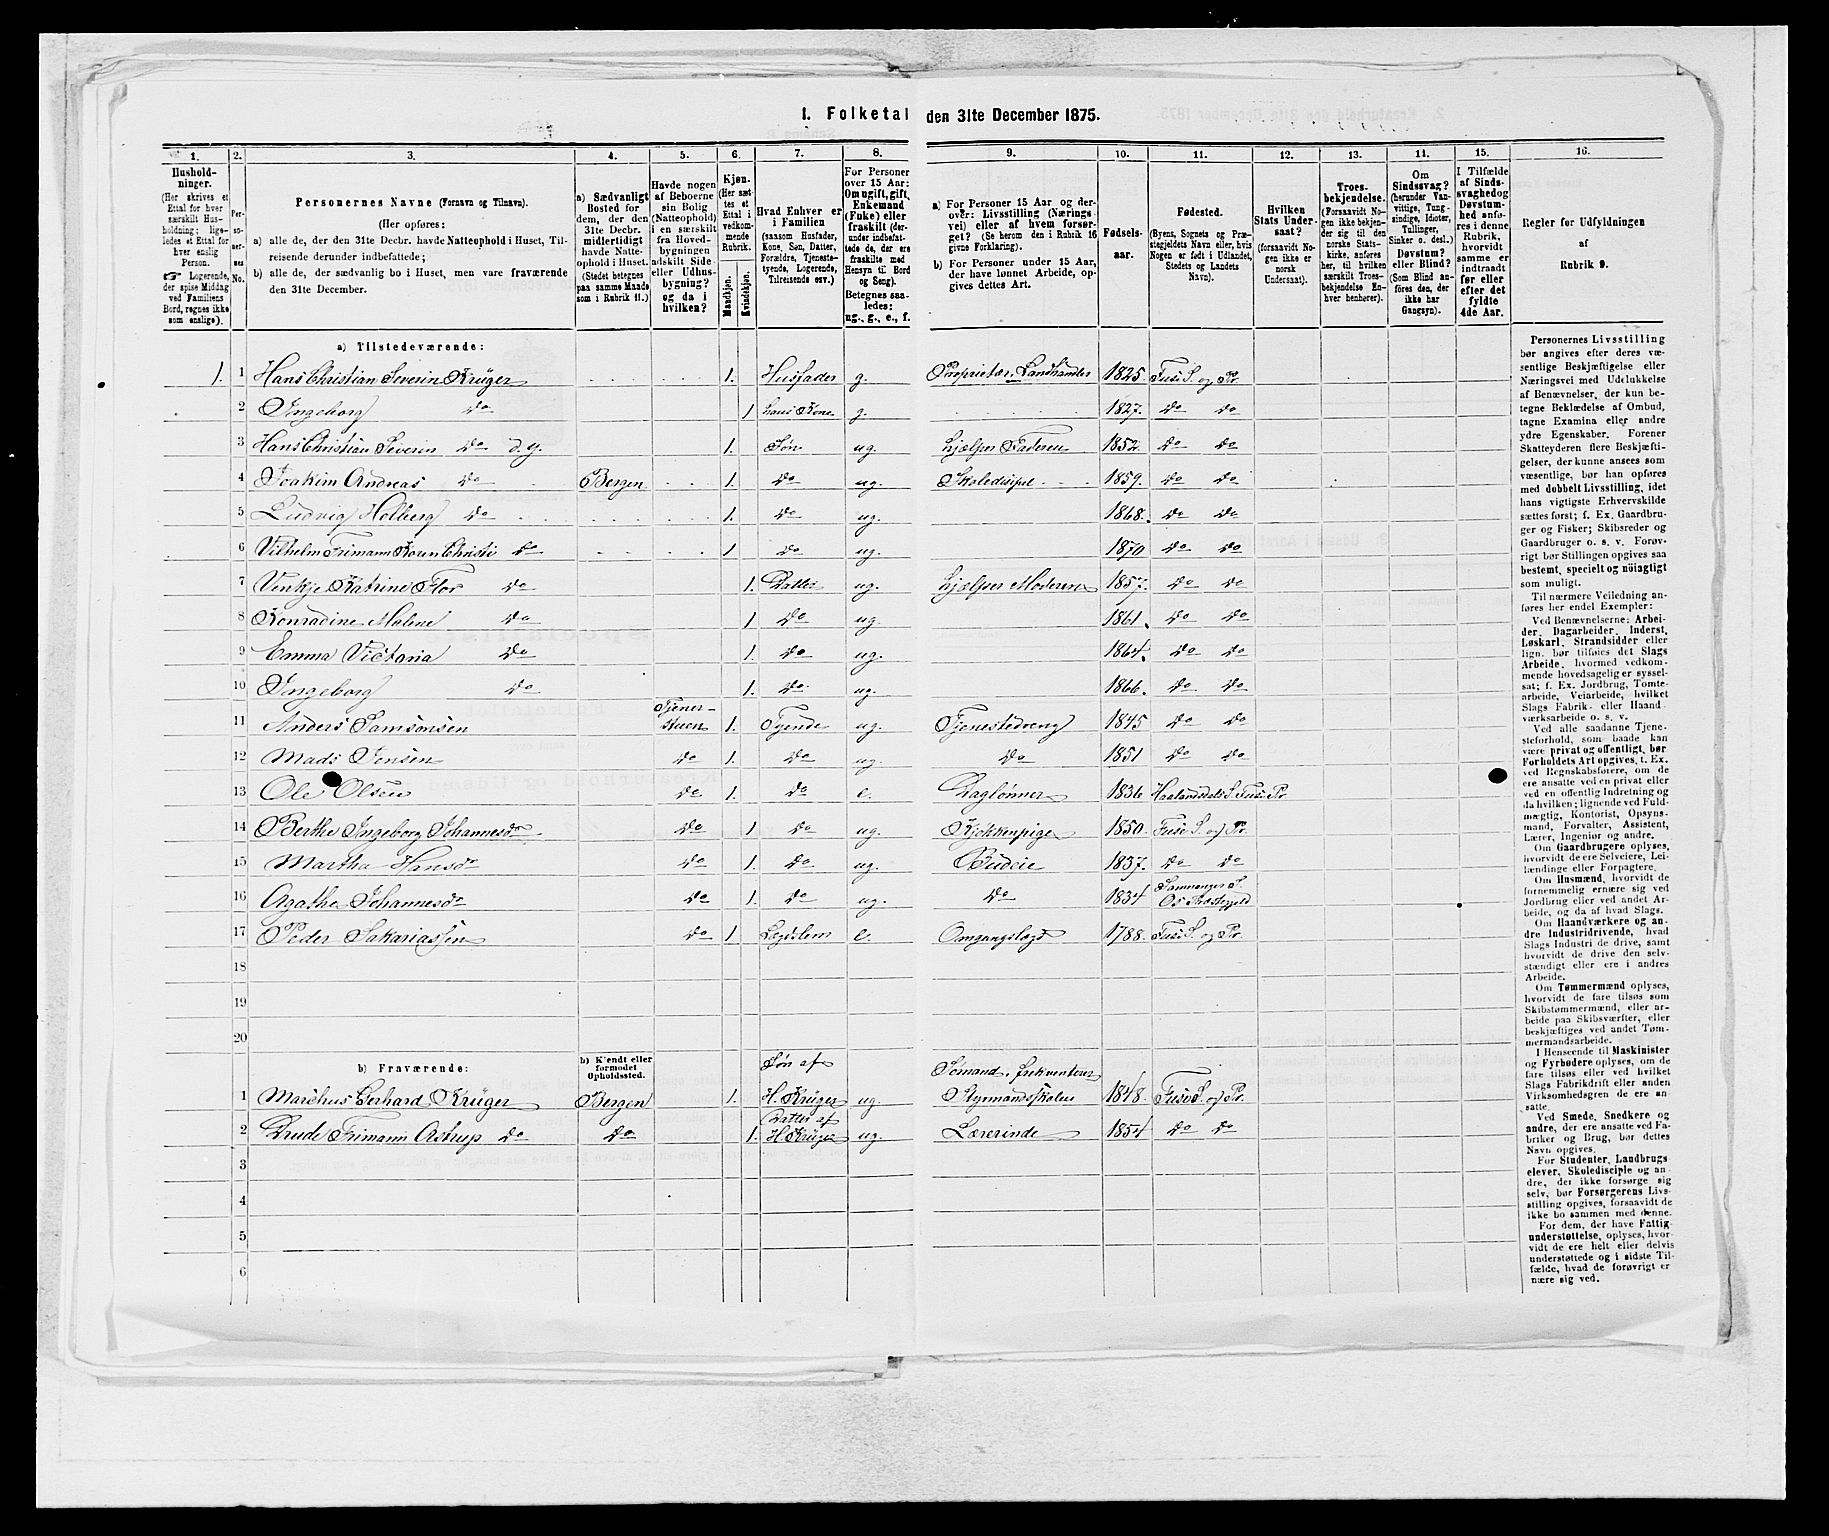 1. Folketal den 31te December 1875.
1. 2. 3. 4. 5. 6. 7. 8. 9. 10. 11. 12. 13. 14. 15. 16.
Hushold-
ninger.
(Her skrives et
Ettal for hver
særskilt Hus-
holdning; lige-
ledes et Ettal for
hver enslig
Person.
☞ Logerende,
der spise Middag
ved Familiens
Bord, regnes ikke
som enslige).
Per-
so-
ner-
nes
No.
Personernes Navne (Fornavn og Tilnavn).
(Her opføres:
a) alle de, der den 31te Decbr. havde Natteophold i Huset, Til-
reisende derunder indbefattede;
b) alle de, der sædvanlig bo i Huset, men vare fraværende
den 31te December.
a) Sædvanligt
Bosted for
dem, der den
31te Decbr.
midlertidigt
havde Natte-
ophold i Huset.
(Stedet betegnes
paa samme Maade
som i Rubrik 11.)
Havde nogen
af Beboerne
sin Bolig
(Natteophold)
i en særskilt
fra Hoved-
bygningen
adskilt Side
eller Udhus-
bygning?
og da i
hvilken?
Kjøn.
(Her sæt-
tes et
Ettal i
vedkom-
mende
Rubrik.
Mandkjøn.
Kvindekjøn.
Hvad Enhver er
i Familien
(saasom Husfader,
Kone, Søn, Datter,
Forældre, Tjeneste-
tyende, Logerende,
Tilreisende osv.)
For Personer
over 15 Aar:
Om ugift, gift,
Enkemand
(Enke) eller
fraskilt (der-
under indbefat-
tede de, der ere
fraskilte med
Hensyn til Bord
og Seng).
Betegnes saa-
ledes:
ug., g., e., f.
a) For Personer 15 Aar og der-
over: Livsstilling (Nærings-
vei) eller af hvem forsør-
get? (Se herom den i Rubrik 16
givne Forklaring).
b) For Personer under 15 Aar,
der have lønnet Arbeide, op-
gives dettes Art.
Fødsels-
aar.
Fødested.
(Byens, Sognets og Præ-
stegjeldets Navn eller, hvis
Nogen er født i Udlandet,
Stedets og Landets
Navn).
Hvilken
Stats Under-
saat?
(forsaavidt No-
gen ikke er
norsk
Undersaat).
Troes-
bekjendelse.
(Forsaavidt No-
gen ikke bekjen-
der sig til den
norske Stats-
kirke, anføres
her, til hvilken
særskilt Troes-
bekjendelse En-
hver henhører).
Om
Sindssvag?
(herunder Van-
vittige, Tung-
sindige, Idioter,
Tullinger,
Sinker o. desl.)
Døvstum?
eller Blind?
(Som Blind an-
føres den, der
ikke har
Gangsyn).
I Tilfælde
af Sinds-
svaghed og
Døvstum-
hed anfø-
res i denne
Rubrik,
hvorvidt
samme er
indtraadt
før eller
efter det
fyldte
4de Aar.
Regler for Udfyldningen
af
Rubrik 9.
a) Tilstedeværende:
1. 1 Hans Christian Severin Krüger 1. Husfader g. Proprietær, Landhandler 1825. Fuse S. og Pr.
2 Ingeborg Do 1 hans Kone g. 1827. Do Do
3 Hans Christian Severin Do d. y. 1. Søn ug. hjælper Faderen 1852. Do Do
4 Joakim Andreas Do Bergen 1. Do ug. Skoledisipel 1859. Do Do
5 Ludvig Holberg Do 1. Do ug. 1868. Do Do
6 Vilhelm Frimann Koren Christi Do 1 Do ug. 1870 Do Do
7 Venkje Katrine Flor Do 1. Datter ug. hjælper Moderen 1857. Do Do
8 Konradine Malene Do 1 Do ug. 1861. Do Do
9 Emma Victoria Do 1. Do ug. 1864. Do Do
10 Ingeborg Do 1. Do ug. 1866. Do Do
11 Anders Samsonsen Tjener-
stuen 1. Tyende ug. Tjenestedreng 1845 Do Do
12 Mads Jensen Do 1. Do ug. Do 1851 Do Do
13 Ole Olsen Do 1. Do e. Daglønner 1836 Haalandsdals S. Fuse Pr.
14 Berthe Ingeborg Johannesdr. Do 1 Do ug. Kjøkkenpige 1850. Fuse S. og Pr.
15 Martha Hansdr Do 1. Do ug. Budeie 1837. Do Do
16 Agathe Johannesdr Do 1. Do ug. Do 1834 Samnanger S.
Os Præstegjeld
17 Peder Sakariassen Do 1 Legdslem e. Omgangslægd 1788. Fuse S. og Pr.
18
19
20
b) Fraværende:
b) Kjendt eller
formodet
Opholdssted.
1 Marchus Gerhard Krüger Bergen 1. Søn af
H. Krüger ug. Sømand, frekventerer
Styrmandsskolen 1848. Fuse S. og Pr.
2 Drude Frimann Astrup Do Do 1. Datter af
H. Krüger ug. Lærerinde 1854 Do Do
3
4
5
6
Personernes Livsstilling
bør angives efter deres væ-
sentlige Beskjæftigelse eller
Næringsvei med Udelukkelse
af Benævnelser, der kun be-
tegne Beklædelse af Ombud,
tagne Examina eller andre
ydre Egenskaber. Forener
Skatteyderen flere Beskjæfti-
gelser, der kunne ansees som
væsentlige, bør han opføres
med dobbelt Livsstilling, idet
hans vigtigste Erhvervskilde
sættes først; f. Ex. Gaardbru-
ger og Fisker; Skibsreder og
Gaardbruger o. s. v. Forøv-
rigt bør Stillingen opgives saa
bestemt, specielt og nöiagtigt
som muligt.
Til nærmere Veiledning an-
føres her endel Exempler:
Ved Benævnelserne: Arbei-
der, Dagarbeider, Inderst,
Løskarl, Strandsidder eller
lign. bør tilføies det Slags
Arbeide, hvormed vedkom-
mende hovedsagelig er syssel-
sat; f. Ex. Jordbrug, Tomte-
arbeide, Veiarbeide, hvilket
Slags Fabrik- eller Haand-
værksarbeide o. s. v.
Ved alle saadanne Tjene-
steforhold, som baade kan
være privat og offentligt, bør
Forholdets Art opgives, t. Ex.
ved Regnskabsførere, om de
ere ansatte ved en privat eller
ved en offentlig Indretning og
da hvilken; lignende ved Fuld-
mægtig, Kontorist, Opsyns-
mand, Forvalter, Assistent,
Lærer, Ingeniør og andre.
Om Gaardbrugere oplyses,
hvorvidt de ere Selveiere, Lei-
lændinge eller Forpagtere.
Om Husmænd, hvorvidt de
fornemmelig ernære sig ved
Jordbrug eller ved andet Ar-
beide, og da af hvad Slags.
Om Haandværkere og an-
dre Industridrivende, hvad
Slags Industri de drive, samt
hvorvidt de drive den selv-
stændigt eller ere i andres
Arbeide.
Om Tømmermænd oplyses,
hvorvidt de fare tilsøs som
Skibstømmermænd, eller ar-
beide paa Skibsværfter, eller
beskjæftiges ved andet Tøm-
mermandsarbeide.
I Henseende til Maskinister
og Fyrbødere oplyses, om de
fare tilsøs eller ved hvilket
Slags Fabrikdrift eller anden
Virksomhedsgren de ere an-
satte.
Ved Smede, Snedkere og
andre, der ere ansatte ved Fa-
briker og Brug, bør dettes
Navn opgives.
For Studenter, Landbrugs-
elever, Skoledisciple og an-
dre, der ikke forsørge sig
selv, bør Forsørgerens Livs-
stilling opgives, forsaavidt de
ikke bo sammen med denne.
For dem, der have Fattig-
understøttelse, oplyses, hvor-
vidt de ere helt eller delvis
understøttede og i sidste Til-
fælde, hvad de forøvrigt er-
nære sig ved.